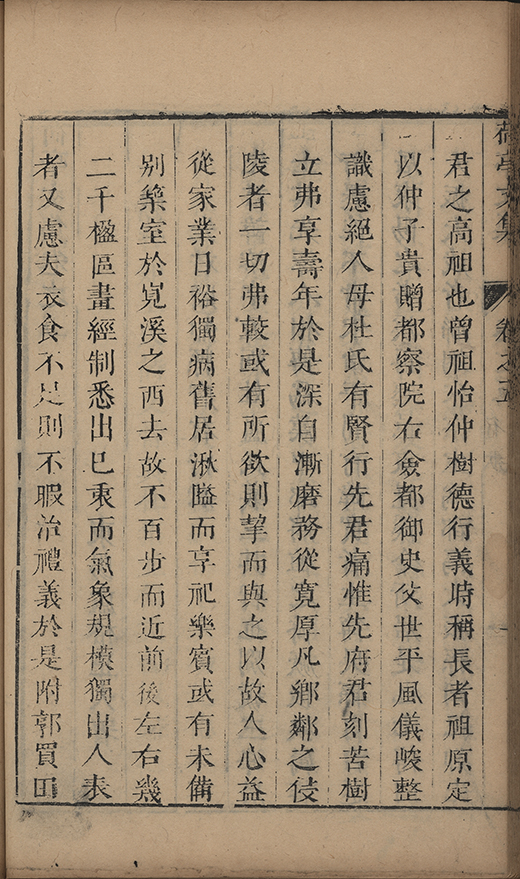 荷亭文集 卷之五
君之高祖也曾祖怡仲樹德行義時稱長者祖原定
以仲子貴贈都察院右僉都御史父世平風儀峻整
識慮絕人母杜氏有賢行先君痛惟先府君刻苦樹
立弗享壽年於是深自漸磨務從寬厚凡鄉鄰之伎
陵者一切弗較或有所欲則挈而與之以故人心益
從家業日裕獨病舊居湫隘而享祀樂賓或有未備
別築室於寛溪之西去故不百步而近前後左右幾
二千楹區畫經制悉出已乘而氣象規模獨出人表
者又慮夫衣食不足則不暇治禮義於是附郭買田